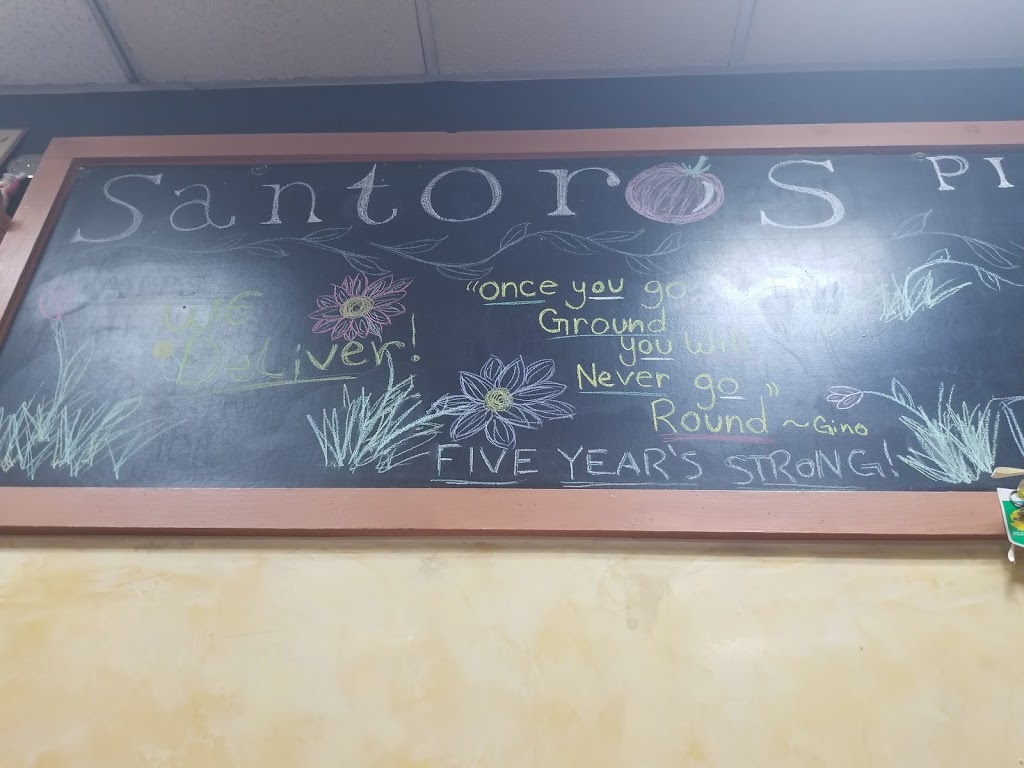 Santoros PI
We
Deliver!
"once you go
Ground
you will
Never go"
Round ~Gino
FIVE YEAR'S STRONG!